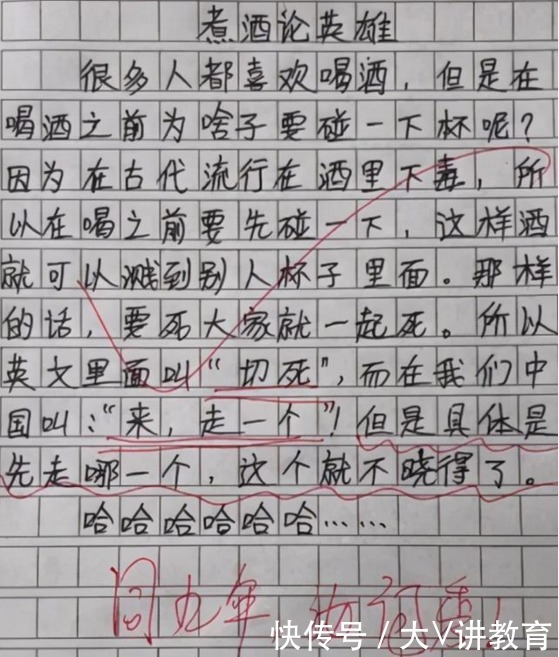 煮酒论英雄
很多人都喜欢喝酒，但是在
喝酒之前为啥子要碰一下杯呢？
因为在古代流行在酒里下毒，所
以在喝之前要先碰一下，这样酒
就可以溅到别人杯子里面。那样
的话，要死大家就一起死。所以
英文里面叫“切死”，而在我们中
国叫：“来，走一个”！但是具体是
先走哪一个，这个就不晓得了。
哈哈哈哈哈哈……
同九年 汝何秀！
快传号 / 大V讲教育